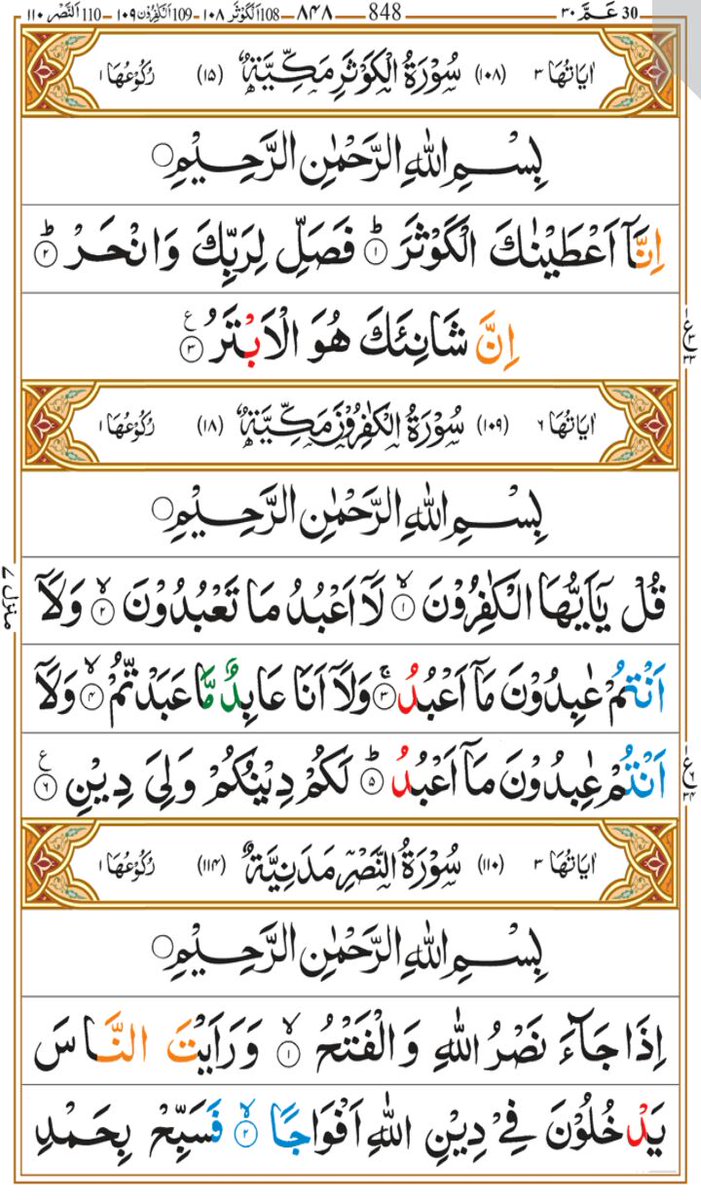 30 عَمَّ ٣٠ — 848 — ٨٤٨ — 108 اَلْكَوْثَر ١٠٨ — 109 اَلْكٰفِرُوْن ١٠٩ — 110 اَلنَّصْر ١١٠
اٰيَاتُهَا ٣ (١٠٨) سُوْرَةُ الْكَوْثَرِ مَكِّيَّةٌ (١٥) رُكُوْعُهَا ١
بِسْمِ اللّٰهِ الرَّحْمٰنِ الرَّحِيْمِ
اِنَّاۤ اَعْطَيْنٰكَ الْكَوْثَرَ ؕ ١ فَصَلِّ لِرَبِّكَ وَانْحَرْ ؕ ٢
اِنَّ شَانِئَكَ هُوَ الْاَبْتَرُ ٣ ع
اٰيَاتُهَا ٦ (١٠٩) سُوْرَةُ الْكٰفِرُوْنَ مَكِّيَّةٌ (١٨) رُكُوْعُهَا ١
بِسْمِ اللّٰهِ الرَّحْمٰنِ الرَّحِيْمِ
قُلْ يٰۤاَيُّهَا الْكٰفِرُوْنَ ۙ ١ لَاۤ اَعْبُدُ مَا تَعْبُدُوْنَ ۙ ٢ وَلَاۤ
اَنْتُمْ عٰبِدُوْنَ مَاۤ اَعْبُدُ ۚ ٣ وَلَاۤ اَنَا عَابِدٌ مَّا عَبَدْتُّمْ ۙ ٤ وَلَاۤ
اَنْتُمْ عٰبِدُوْنَ مَاۤ اَعْبُدُ ؕ ٥ لَكُمْ دِيْنُكُمْ وَلِيَ دِيْنِ ٦ ع
منزل ٧
اٰيَاتُهَا ٣ (١١٠) سُوْرَةُ النَّصْرِ مَدَنِيَّةٌ (١١٤) رُكُوْعُهَا ١
بِسْمِ اللّٰهِ الرَّحْمٰنِ الرَّحِيْمِ
اِذَا جَآءَ نَصْرُ اللّٰهِ وَالْفَتْحُ ۙ ١ وَرَاَيْتَ النَّاسَ
يَدْخُلُوْنَ فِيْ دِيْنِ اللّٰهِ اَفْوَاجًا ۙ ٢ فَسَبِّحْ بِحَمْدِ